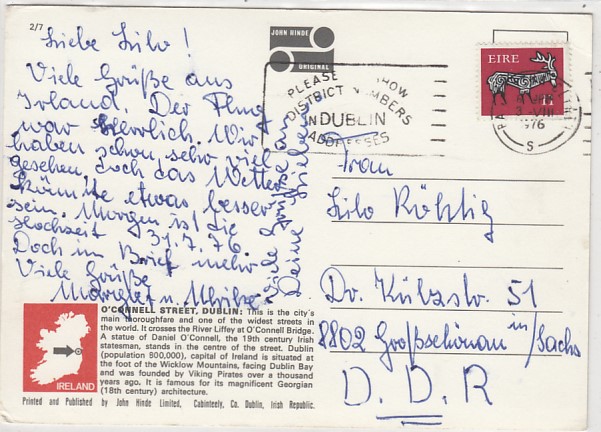 2/7
JOHN HINDE
ORIGINAL
Liebe Lilo!
Viele Grüße aus
Irland. Der Flug
war herrlich. Wir
haben schon sehr viel
gesehen, doch das Wetter
könnte etwas besser
sein. Morgen ist die
Hochzeit 31.7.76.
Doch im Brief mehr
Viele Grüße
Margret u.
Viele Grüße an
Deine Lieben
PLEASE SHOW
DISTRICT NUMBERS
IN DUBLIN
ADDRESSES
EIRE
1976
S
Frau
Lilo Röthig
Dr. Külzstr. 51
8802 Großschönau in/Sachs
D.D.R
O'CONNELL STREET, DUBLIN: This is the city's
main thoroughfare and one of the widest streets in
the world. It crosses the River Liffey at O'Connell Bridge.
A statue of Daniel O'Connell, the 19th century Irish
statesman, stands in the centre of the street. Dublin
(population 800,000), capital of Ireland is situated at
the foot of the Wicklow Mountains, facing Dublin Bay
and was founded by Viking Pirates over a thousand
years ago. It is famous for its magnificent Georgian
(18th century) architecture.
IRELAND
Printed and Published by John Hinde Limited, Cabinteely, Co. Dublin, Irish Republic.